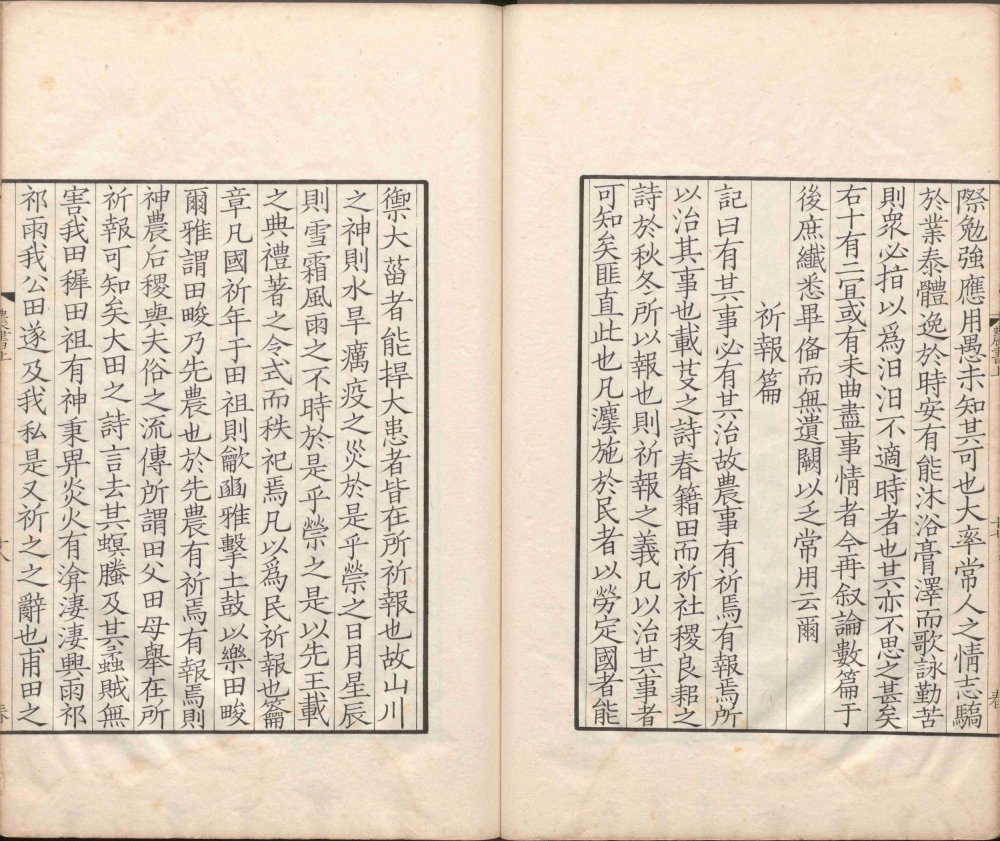 際勉強應用愚未知其可也大率常人之情志驕
於業泰體逸於時安有能沐浴膏澤而歌詠勤苦
則衆必指以爲汨汨不適時者也其亦不思之甚矣
右十有二宜或有未曲盡事情者今再叙論數篇于
後庶纖悉畢俻而無遺闕以乏常用云爾
祈報篇
記曰有其事必有其治故農事有祈焉有報焉所
以治其事也載芟之詩春籍田而祈社稷良耜之
詩於秋冬所以報也則祈報之義凡以治其事者
可知矣匪直此也凡灋施於民者以勞定國者能
禦大菑者能捍大患者皆在所祈報也故山川
之神則水旱癘疫之災於是乎禜之日月星辰
則雪霜風雨之不時於是乎禜之是以先王載
之典禮著之令式而秩祀焉凡以爲民祈報也籥
章凡國祈年于田祖則龡豳雅擊土鼓以樂田畯
爾雅謂田畯乃先農也於先農有祈焉有報焉則
神農后稷與夫俗之流傳所謂田父田母舉在所
祈報可知矣大田之詩言去其螟螣及其蟊賊無
害我田穉田祖有神秉畀炎火有渰淒淒興雨祁
祁雨我公田遂及我私是又祈之之辭也甫田之
農書上
十七
農書上
十八